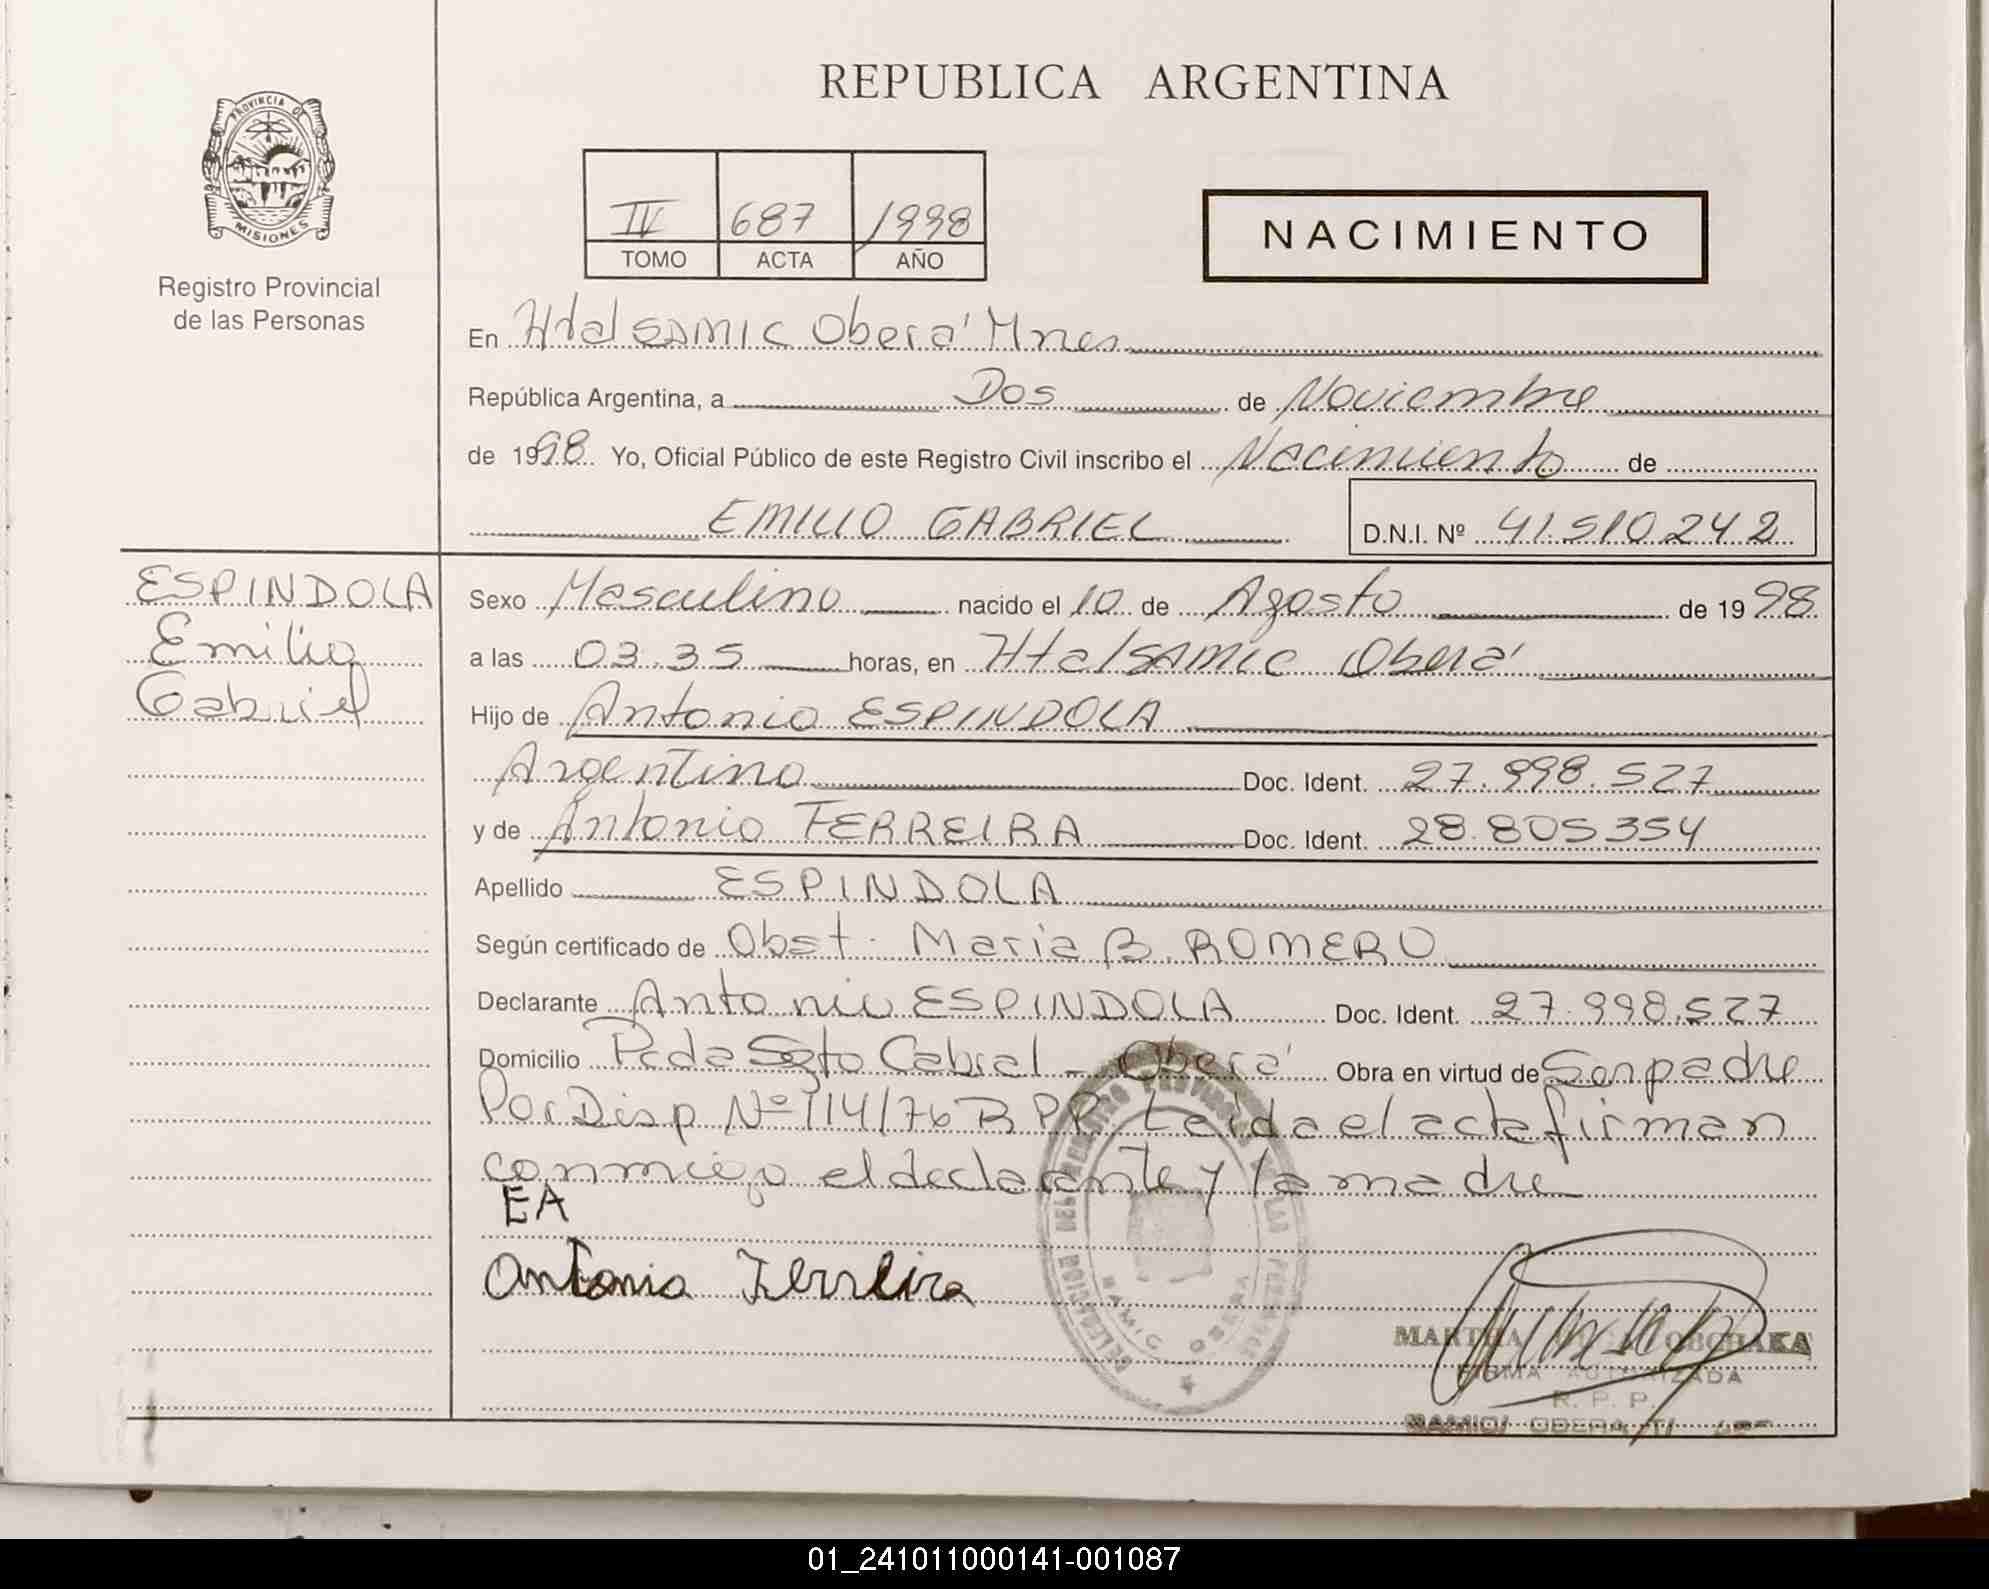 REPUBLICA ARGENTINA
PROVINCIA DE
MISIONES
Registro Provincial
de las Personas
IV 687 1998
TOMO ACTA AÑO
NACIMIENTO
En Htal SAMIC Oberá Mnes
República Argentina, a Dos de Noviembre
de 1998 Yo, Oficial Público de este Registro Civil inscribo el Nacimiento de
EMILIO GABRIEL D.N.I. Nº 41.510.242
ESPINDOLA
Emilio
Gabriel
Sexo Masculino nacido el 10 de Agosto de 1998
a las 03.35 horas, en Htal SAMIC Oberá
Hijo de Antonio ESPINDOLA
Argentino Doc. Ident. 27.998.527
y de Antonia FERREIRA Doc. Ident. 28.805354
Apellido ESPINDOLA
Según certificado de Obst. Maria B. ROMERO
Declarante Antonio ESPINDOLA Doc. Ident. 27.998.527
Domicilio Pcda Sgto Cabral - Oberá Obra en virtud de Ser padre
Por Disp Nº 114/76 R PP. Leida el acta firman
conmigo el declarante y la madre
EA
Antonia Ferreira
DELEGACION DEL REGISTRO PROVINCIAL DE LAS PERSONAS
SAMIC OBERA
MARTHA
FIRMA AUTORIZADA
R. P. P.
SAMIC/ OBERA
01_241011000141-001087